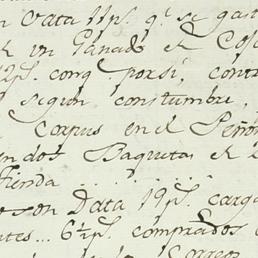 n Data 11ps. q.e se gast
en Ganado el Col
2ps. conq. por sí, cont
segun constumbre,
Corpus en el Peño
en dos Baquetas el
Tienda
son Data 19ps. carg
tes... 6½ps. comprados